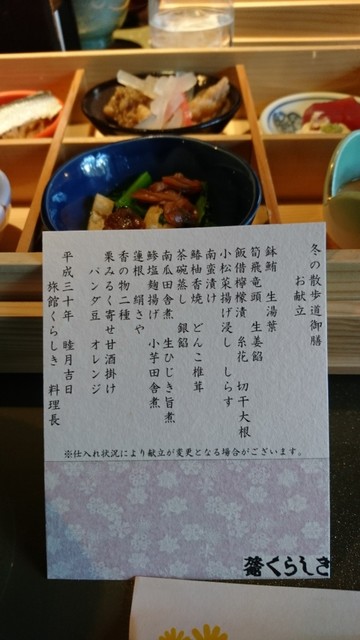 冬の散歩道御膳
お献立
鉢鮪　生湯葉
筍飛竜頭　生姜餡
飯借檸檬漬　糸花　切干大根
小松菜揚げ浸し　しらす
南蛮漬け
鰆柚香焼　どんこ椎茸
茶碗蒸し　銀餡
南瓜田舎煮　生ひじき旨煮
鯵塩麹揚げ　小芋田舎煮
蓮根　絹さや
香の物二種
栗みるく寄せ甘酒掛け
パンダ豆　オレンジ
平成三十年　睦月吉日
旅館くらしき　料理長
※仕入れ状況により献立が変更となる場合がございます。
くらしき